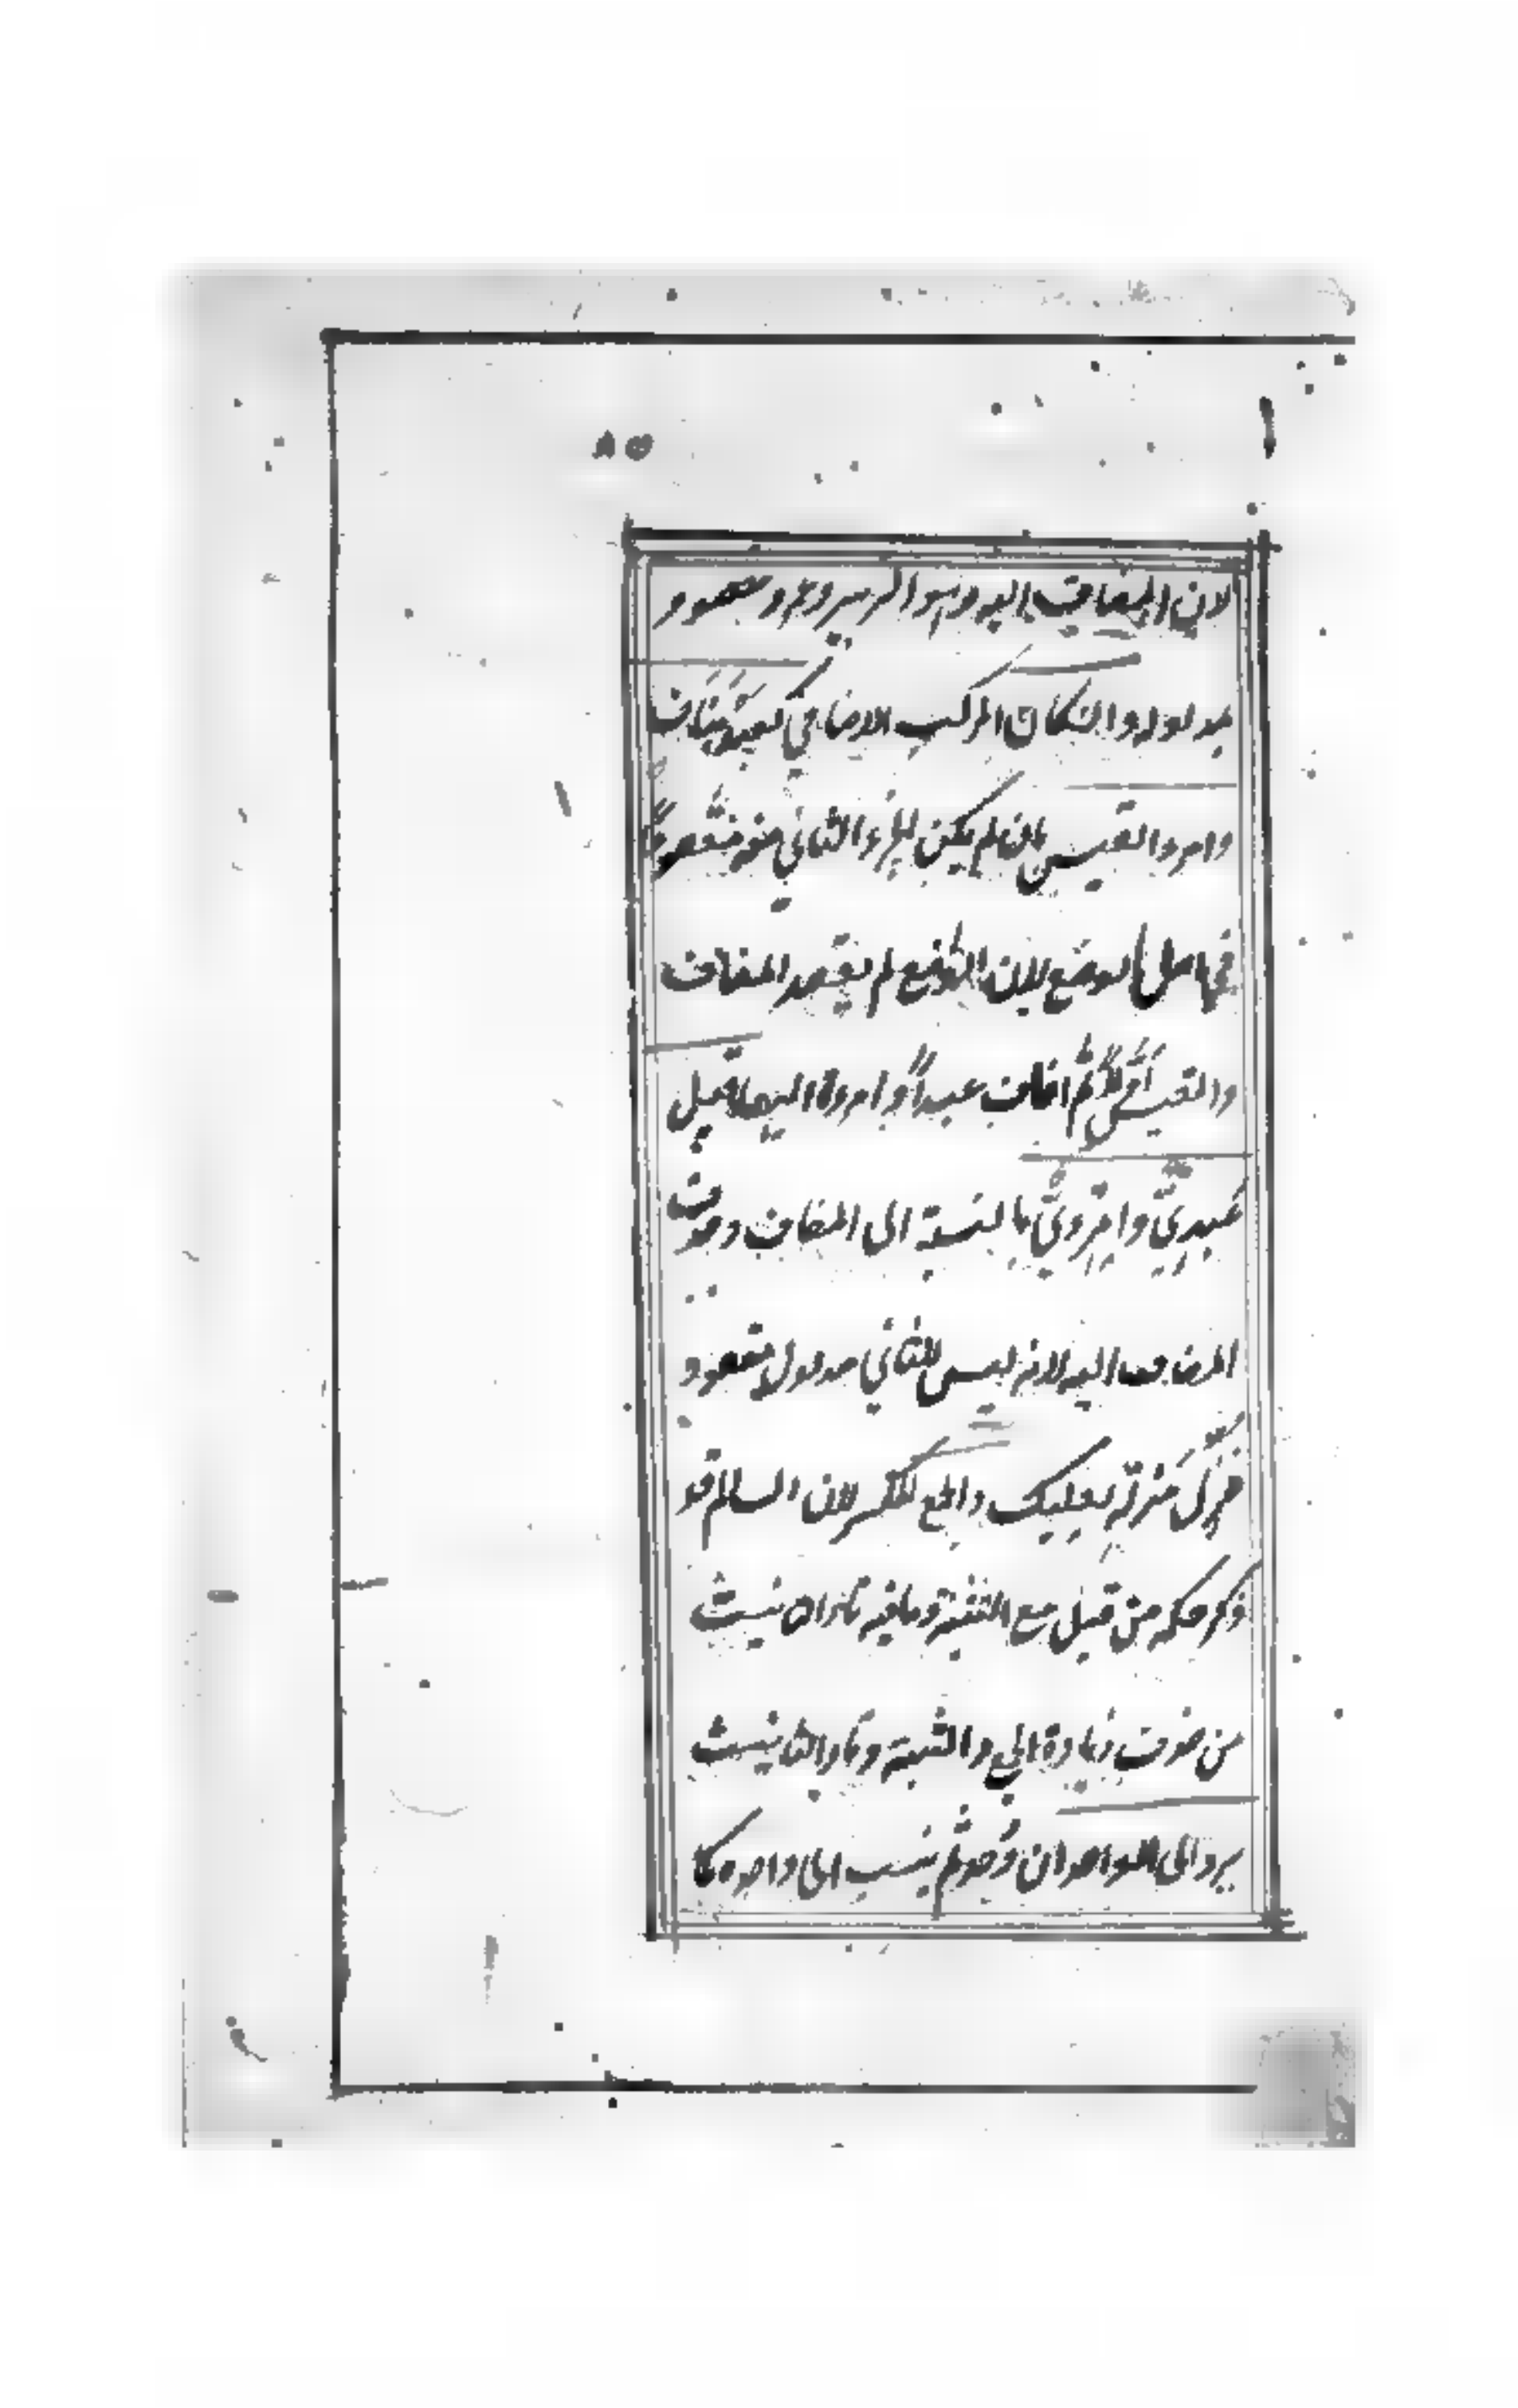 ٨٥
لان المضاف اليه وهو الزبير وعمرو مقصود
مدلوله وان كان المركب الاضافي كعبد مناف
وامرء القيس بان لم يكن للجزء الثاني منه مقصودًا
في اصل الوضع لان الواضع لم يقصد المضاف
والقيس ثم اضاف عبدًا وامروا اليهما قيل
عبديّ وامرويّ بالنسبة الى المضاف وحذف
المضاف اليه لانه ليس للثاني مدلول مقصود
منزلة بعلبك والجمع المكسر لان السالم قد
ذكر حكمه من قبل مع التثنية وما فيه تاء التانيث
من حذف زيادة الجمع والتثنية وتاء التانيث
يرد الى الواحد ان وجد ثم ينسب الى واحده كما